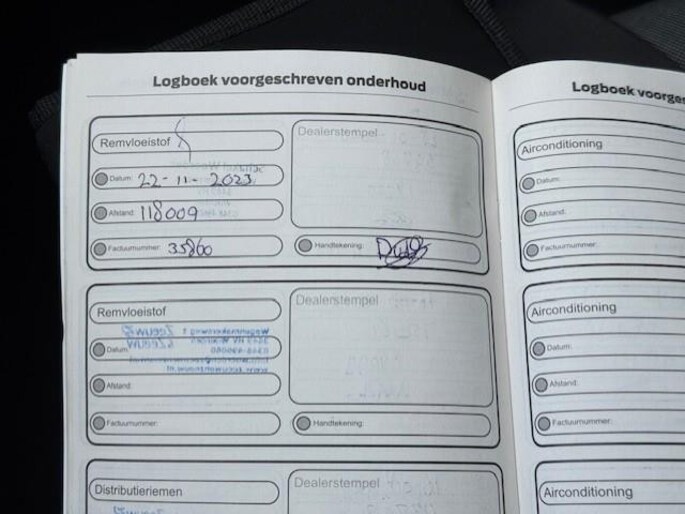 Logboek voorgeschreven onderhoud
Remvloeistof
Datum: 22-11-2023
Afstand: 118009
Factuurnummer: 35860
Dealerstempel
Handtekening:
Remvloeistof
Datum:
Afstand:
Factuurnummer:
Dealerstempel
Handtekening:
Distributieriemen
Dealerstempel
Logboek voorges
Airconditioning
Datum:
Afstand:
Factuurnummer:
Airconditioning
Datum:
Afstand:
Factuurnummer:
Airconditioning